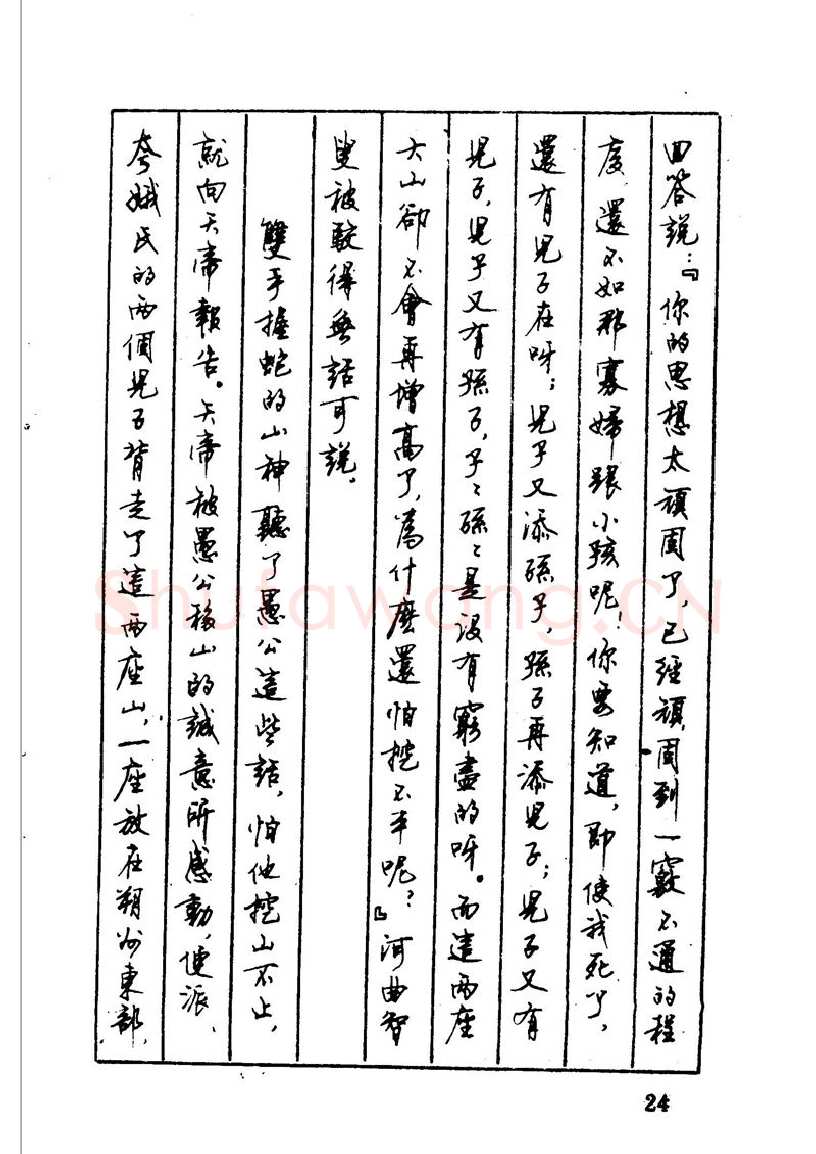 回答說：『你的思想太頑固了，已經頑固到一竅不通的程
度，還不如那寡婦跟小孩呢！你要知道，即使我死了，
還有兒子在呀；兒子又添孫子，孫子再添兒子；兒子又有
兒子，兒子又有孫子，子子孫孫是沒有窮盡的呀。而這兩座
大山卻不會再增高了，為什麽還怕挖不平呢？』河曲智
叟被駁得無話可說。
雙手握蛇的山神聽了愚公這些話，怕他挖山不止，
就向天帝報告。天帝被愚公移山的誠意所感動，便派
夸娥氏的兩個兒子背走了這兩座山，一座放在朔州東部，
24
Shufawang.CN